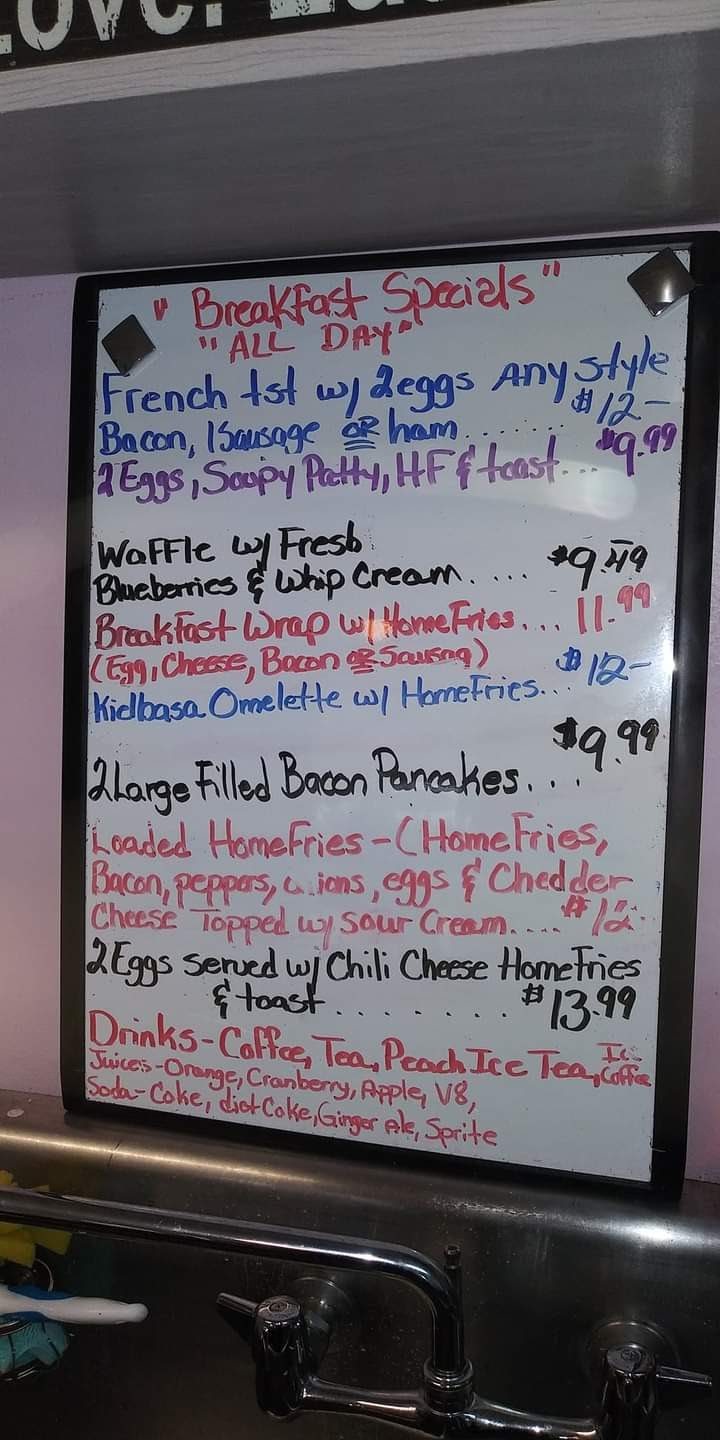 Love.
" Breakfast Specials "
" ALL DAY "
French tst w/ 2eggs Any style
Bacon, 1Sausage OR ham....... $12-
2 Eggs, Soupy Patty, HF & toast... $9.99
Waffle w/ Fresh
Blueberries & Whip Cream..... $9.49
Breakfast Wrap w/ HomeFries... 11.99
(Egg, Cheese, Bacon OR Sausag)
Kidlbasa Omelette w/ HomeFries... $12-
2 Large Filled Bacon Pancakes... $9.99
Loaded HomeFries-(HomeFries,
Bacon, peppers, ions, eggs & Chedder
Cheese Topped w/ Sour Cream.... $12.
2 Eggs served w/ Chili Cheese HomeFries
& toast......... $13.99
Drinks-Coffee, Tea, Peach Ice Tea, Ice Coffee
Juices-Orange, Cranberry, Apple, V8,
Soda-Coke, diet Coke, Ginger Ale, Sprite